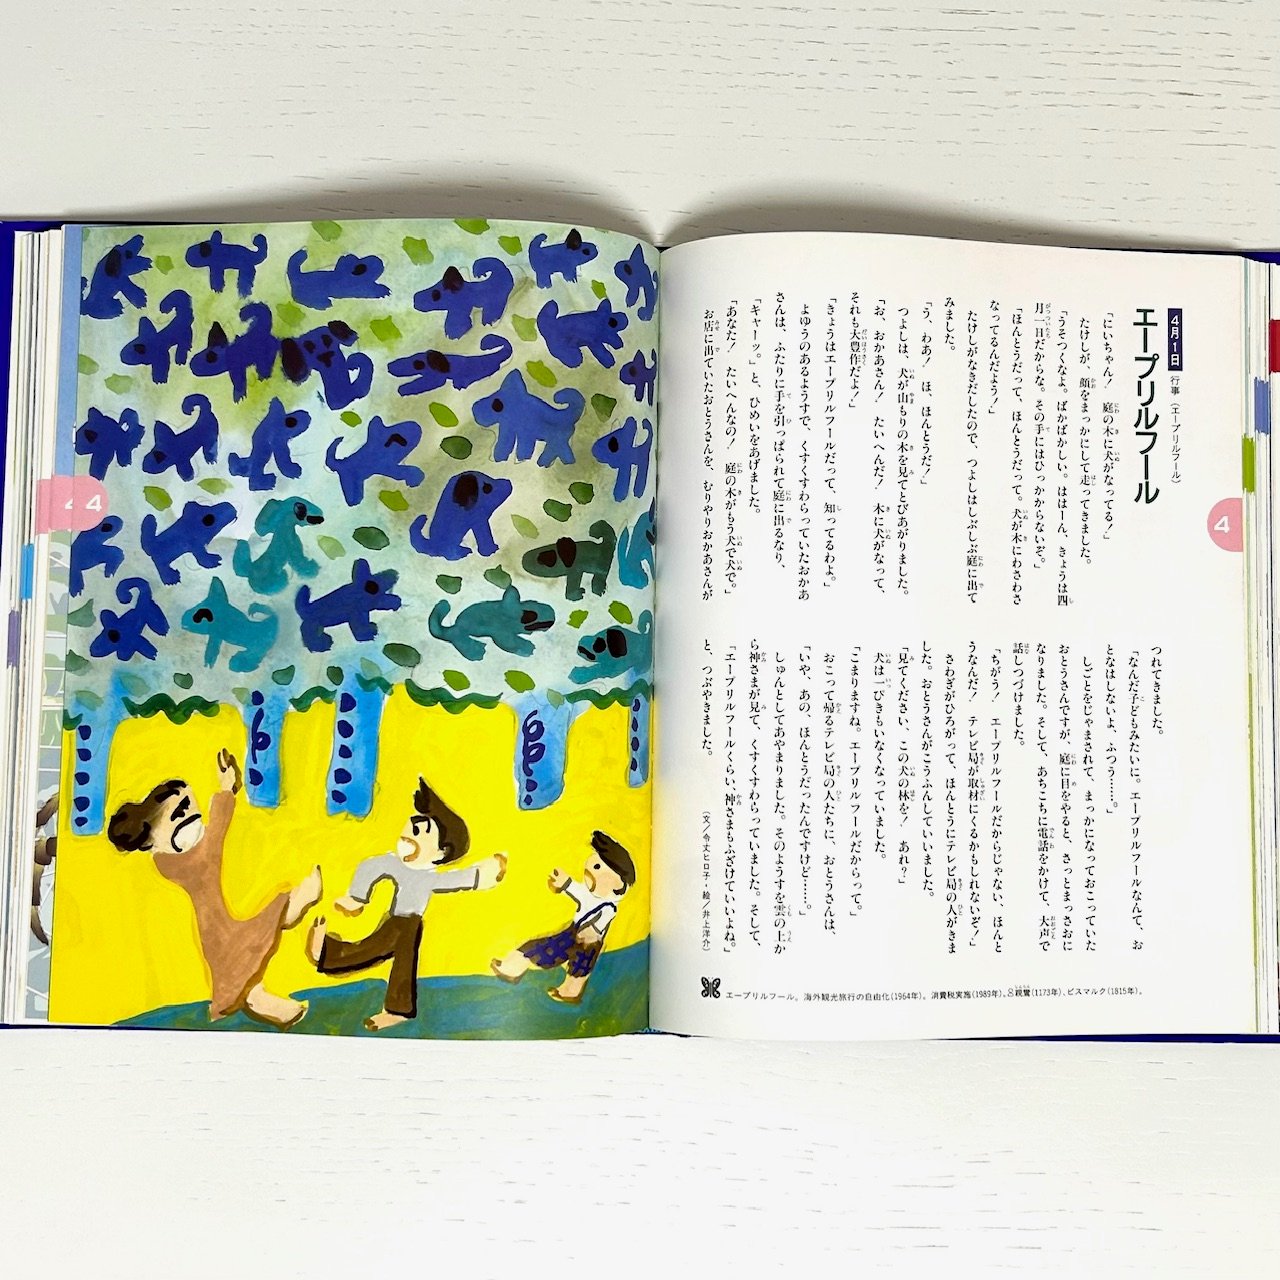 4
4
4月1日
行事(エープリルフール)
エープリルフール
「にいちゃん! 庭の木に犬がなってる!」
たけしが、顔をまっかにして走ってきました。
「うそつくなよ。ばかばかしい。ははーん、きょうは四
月一日だからな。その手にはひっかからないぞ。」
「ほんとうだって、ほんとうだって。犬が木にわさわさ
なってるんだよう!」
たけしがなきだしたので、つよしはしぶしぶ庭に出て
みました。
「う、わあ! ほ、ほんとうだ!」
つよしは、犬が山もりの木を見てとびあがりました。
「お、おかあさん! たいへんだ! 木に犬がなって、
それも大豊作だよ!」
「きょうはエープリルフールだって、知ってるわよ。」
よゆうのあるようすで、くすくすわらっていたおかあ
さんは、ふたりに手を引っぱられて庭に出るなり、
「キャーッ。」と、ひめいをあげました。
「あなた! たいへんなの! 庭の木がもう犬で犬で。」
お店に出ていたおとうさんを、むりやりおかあさんが
つれてきました。
「なんだ子どもみたいに。エープリルフールなんて、お
となはしないよ、ふつう……。」
しごとをじゃまされて、まっかになっておこっていた
おとうさんですが、庭に目をやると、さっとまっさおに
なりました。そして、あちこちに電話をかけて、大声で
話しつづけました。
「ちがう! エープリルフールだからじゃない、ほんと
うなんだ! テレビ局が取材にくるかもしれないぞ!」
さわぎがひろがって、ほんとうにテレビ局の人がきま
した。おとうさんがこうふんしていいました。
「見てください、この犬の林を! あれ?」
犬は一ぴきもいなくなっていました。
「こまりますね。エープリルフールだからって。」
おこって帰るテレビ局の人たちに、おとうさんは、
「いや、あの、ほんとうだったんですけど……。」
しゅんとしてあやまりました。そのようすを雲の上か
ら神さまが見て、くすくすわらっていました。そして、
「エープリルフールくらい、神さまもふざけていいよね。」
と、つぶやきました。
(文/令丈ヒロ子・絵/井上洋介)
エープリルフール。海外観光旅行の自由化(1964年)。消費税実施(1989年)。親鸞(1173年)、ビスマルク(1815年)。
4